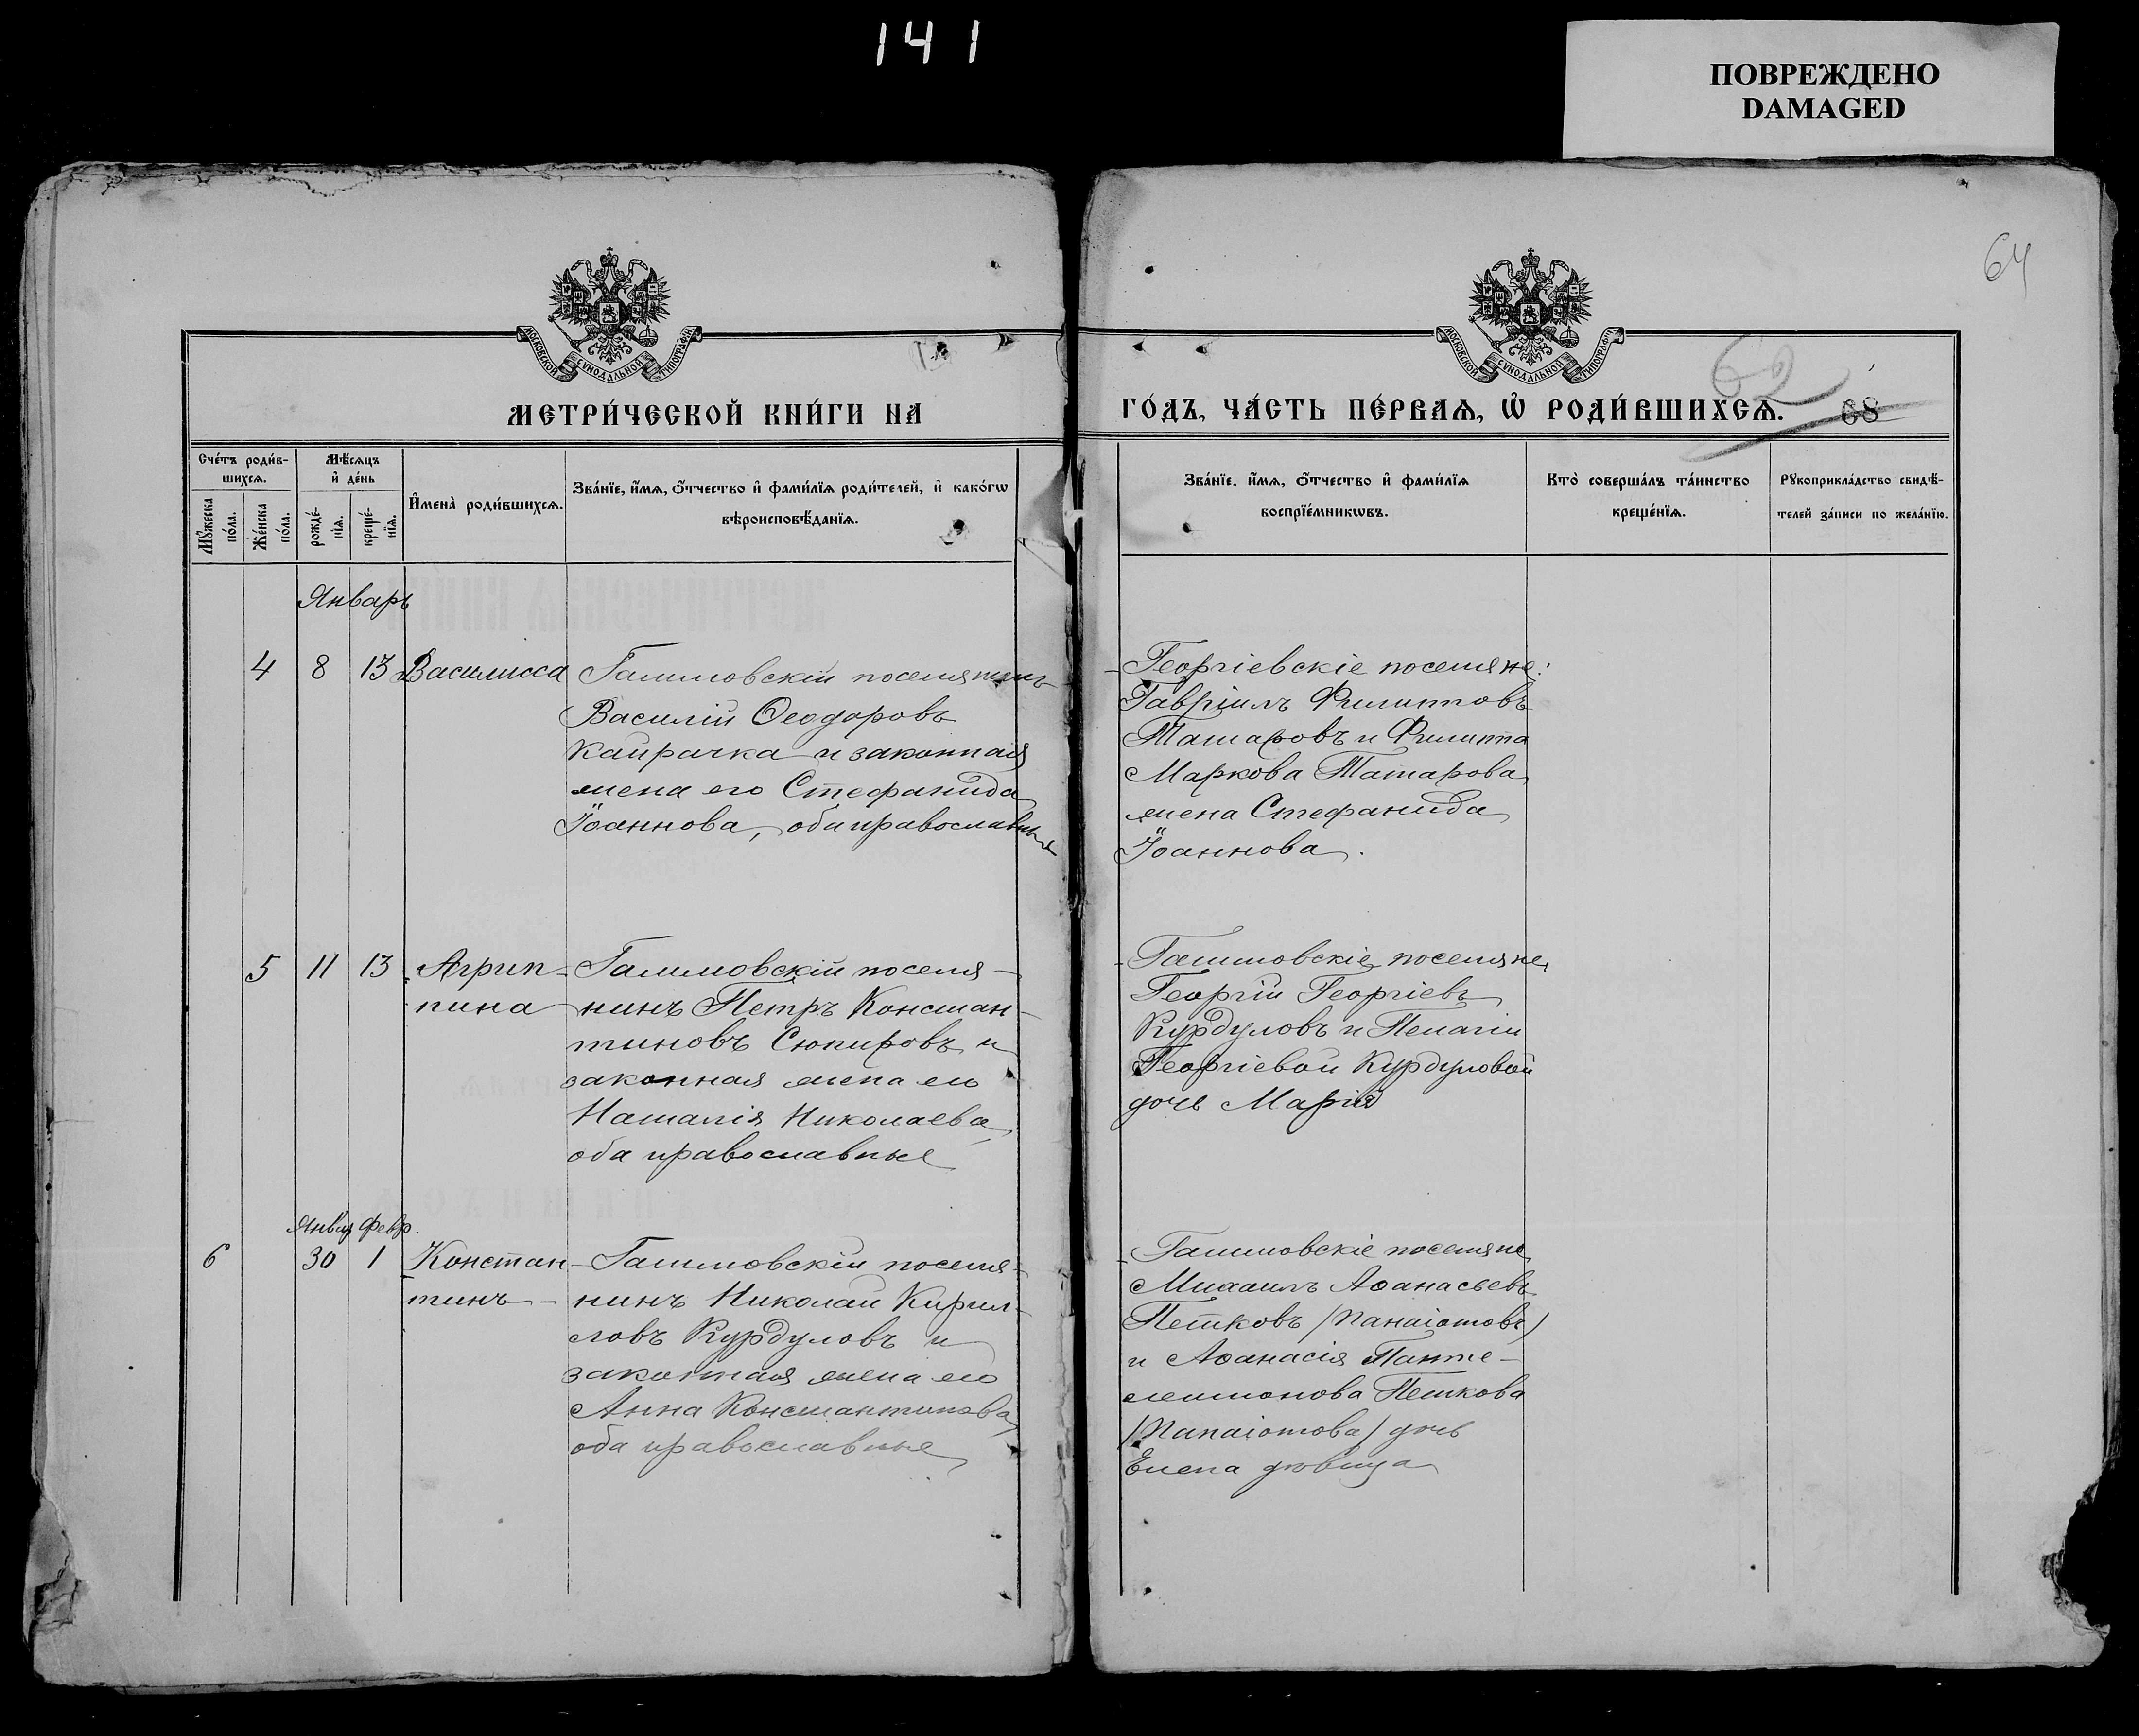 141
ПОВРЕЖДЕНО
DAMAGED
64
МОСКОВСКОЙ СѴНОДАЛЬНОЙ ТИПОГРАФІИ
МОСКОВСКОЙ СѴНОДАЛЬНОЙ ТИПОГРАФІИ
62
МЕТРИ́ЧЕСКОЙ КНИ́ГИ НА
ГО́ДЪ, ЧА́СТЬ ПЕ́РВАѦ, Ѡ҆ РОДИ́ВШИХСѦ.
68
Сче́тъ роди́в-
шихсѧ.
Мꙋ́жеска
по́ла.
Же́нска
по́ла.
Мѣ́сѧцъ
и҆ де́нь
рожде́-
нїѧ.
креще́-
нїѧ.
И҆мена̀ роди́вшихсѧ.
Зва́нїе, и҆́мѧ, ѻ҆́тчество и҆ фами́лїѧ роди́телей, и҆ како́гѡ
вѣроисповѣ́данїѧ.
Зва́нїе, и҆́мѧ, ѻ҆́тчество и҆ фами́лїѧ
воспрїе́мникѡвъ.
Кто̀ соверша́лъ та́инство
креще́нїѧ.
Рꙋкоприкла́дство свидѣ́-
телей за́писи по жела́нїю.
Январь
4 8 13 Василисса
поселянинъ
Василій Ѳеодоровъ
Кайрачка и законная
жена его Стефанида
Іоаннова, оба православные
Георгіевскіе поселяне:
Гавріилъ Филипповъ
Татаровъ и Филиппа
Маркова Татарова
жена Стефанида
Іоаннова.
5 11 13 Агрип-
пина
поселя-
нинъ Петръ Констан-
тиновъ Сюпировъ и
законная жена его
Наталія Николаева,
оба православные
поселяне
Георгій Георгіевъ
Курдуловъ и Пелагіи
Георгіевой Курдуловой
дочь Марія
Янв. Февр.
6 30 1 Констан-
тинъ
поселя-
нинъ Николай Кирил-
ловъ Курдуловъ и
законная жена его
Анна Константинова,
оба православные
поселяне
Михаилъ Аѳанасьевъ
Петковъ (Панаіотовъ)
и Аѳанасія Панте-
леимонова Петкова
(Панаіотова) дочь
Елена дѣвица